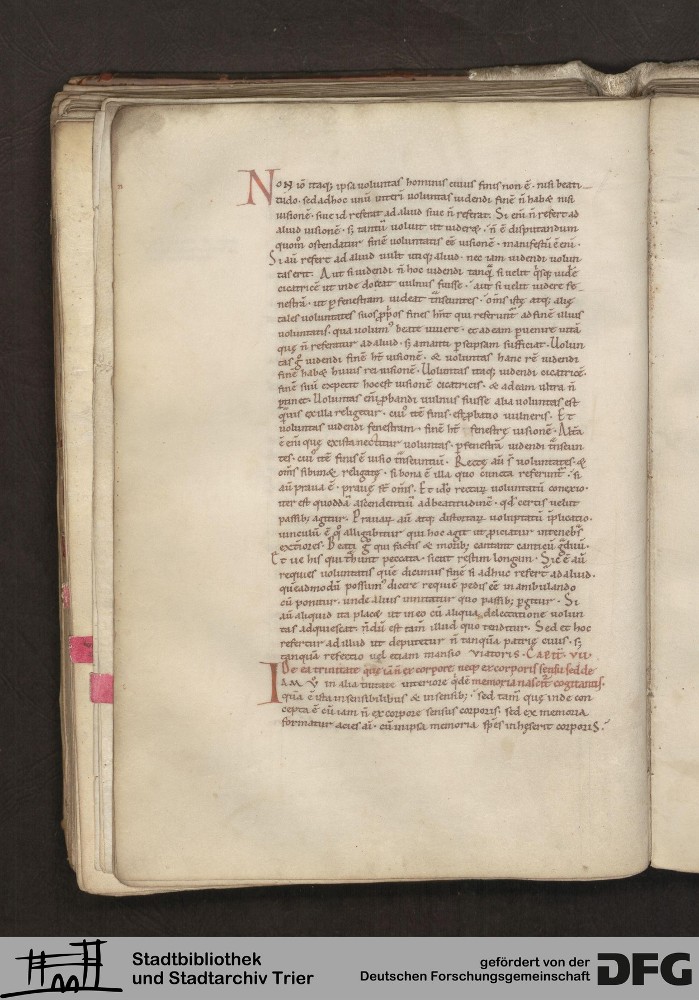 Non iō itaq; ipsa uoluntas hominis cuius finis non ē. nisi beati
tudo. sed adhoc unū interī uoluntas uidendi finē ñ habæ nisi
uisionē. siue id referat ad aliud siue ñ referat. Si eñi ñ refert ad
aliud uisionē. s; tantū uoluit ut uideræ. ñ ē disputandum
quom̄ ostendatur finē uoluntatis eē uisionē. manifestū ē eñi.
Si aū refert ad aliud uult utiq; aliud. nec iam uidendi uolun
tas erit. Aut si uidendi ñ hoc uidendi tanqͣ si uelit qͥsq; uidē
cicatricē ut inde doceat uulnus fuisse. aut si uelit uidere fe
nestrā. ut ꝑ fenestram uideat tͣnseuntes. om̄s istę atq; alię
tales uoluntates suos ꝓpͥos fines hñt qui referunt̄ ad finē illius
uoluntatis. qua uolumꝰ beate uiuere. et ad eam ꝑuenire uitā
quę ñ referatur ad aliud. s; amanti ꝑ seipsam sufficiat. Uolun
tas gͦ uidendi finē ht̄ uisionē. & uoluntas hanc rē uidendi
finē habæ huius rei uisionē. Uoluntas itaq; uidendi cicatricē.
finē suū expetit hoc est uisionē cicatricis. & ad eam ultra ñ
ꝑtinet. Uoluntas eñi ꝓbandi uulnus fuisse alia uoluntas est
qͣuis ex illa religetur. cuiꝰ itē finis. est ꝓbatio uulneris. Et
uoluntas uidendi fenestram. finē ht̄ fenestrę uisionē. Altͣa
ē eñi quę ex ista nectitur uoluntas. ꝑ fenestrā uidendi tͣnseun
tes. cuiꝰ itē finis ē uisio tͣnseuntiū. Rectę aū s̄ uoluntates. &
om̄s sibimæ religatę. si bona ē illa quo cunctę referunt̄. si
aū praua ē. prauę st̄ om̄s. Et idō rectaꝝ uoluntatū conexio.
iter est quoddā ascendentiū ad beatitudinē. qd̄ certis uelut
passib; agitur. Prauaꝝ aū atq; distortaꝝ uoluntatū īplicatio.
uinculū ē qͦ alligabitur qui hoc agit ut ꝓiciatur in tenebͣs
exteriores. Beati gͦ qui factis & morib; cantant canticū gͣduū.
Et ue his qui tͣhunt peccata. sicut restim longum. Sic ē aū
requies uoluntatis quē dicimus finē si adhuc refert̄ ad aliud.
quēadmodū possumꝰ dicere requiē pedis eē in ambulando
cū ponitur. unde alius innitatur quo passib; ꝑgitur. Si
aū aliquid ita placæ ut in eo cū aliqua delectatione uolun
tas adquiescat. ñdū est tam̄ illud quo tenditur. Sed et hoc
refertur ad illud ut deputetur ñ tanquā patria ciuis. s;
tanquā refectio uel etiam mansio uiatoris. Capit. VII.
De ea trinitate quę iā ñ ex corpore neq; ex corporis sensu sed de
Iam ꝟ in alia trinitate interiore qͥdē memoria nascit̄ cogitantis.
quā ē ista in sensibilibus & in sensib;. sed tam̄ quę inde con
cepta ē cū iam ñ ex corpore sensus corporis. sed ex memoria
formatur acies ai. cū in ipsa memoria spēs inhęserit corporis.
Stadtbibliothek
und Stadtarchiv Trier
gefördert von der
Deutschen Forschungsgemeinschaft
DFG